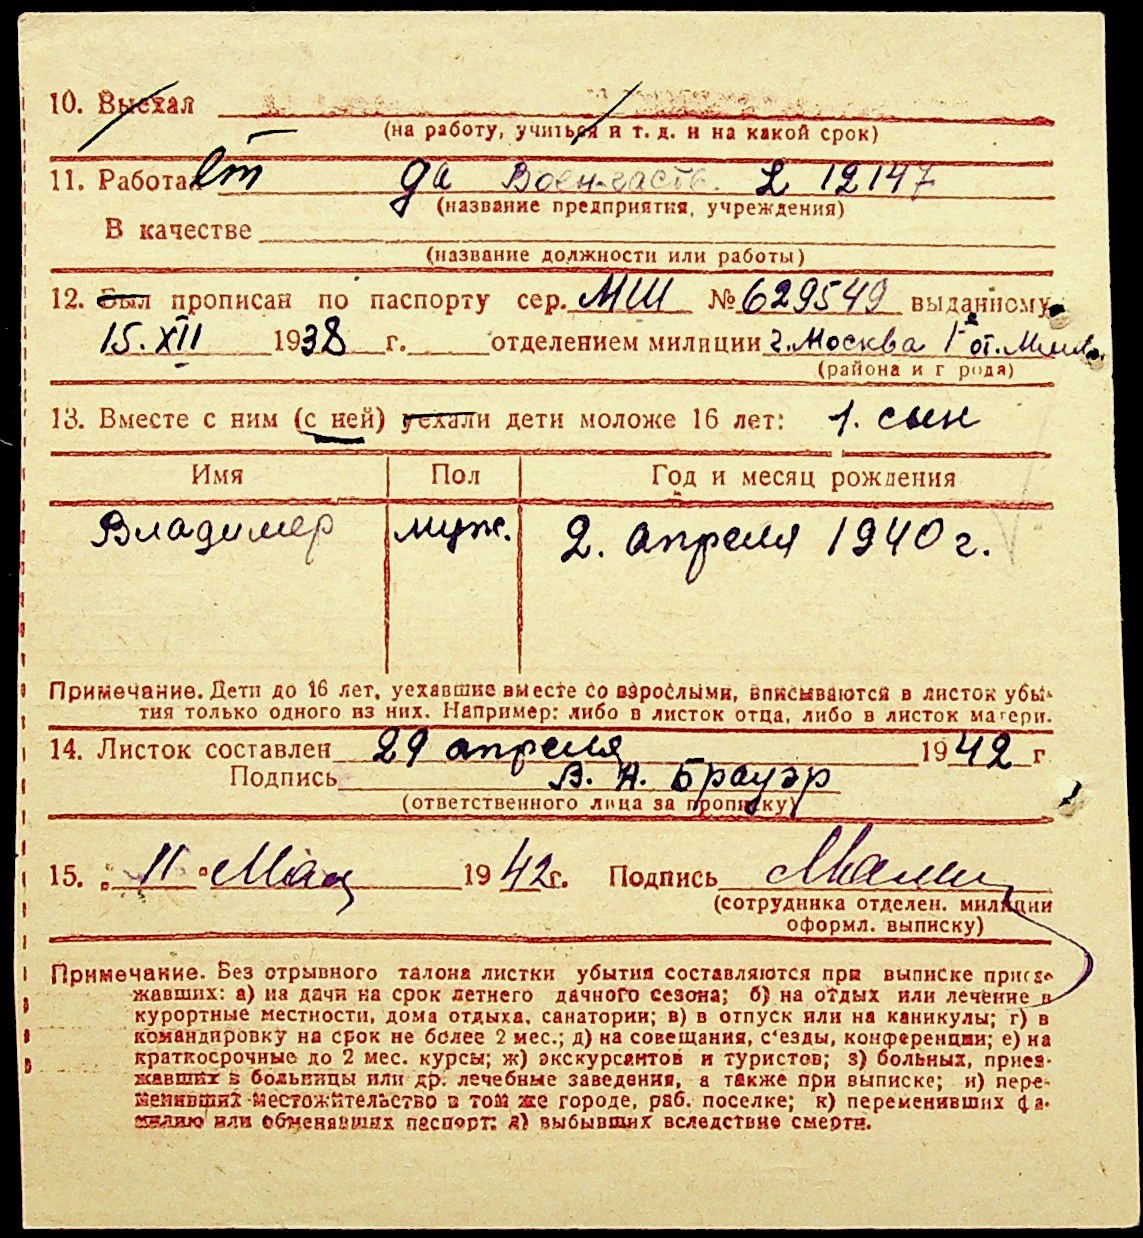 10. Выехал
(на работу, учиться и т. д. и на какой срок)
11. Работает да Воен-часть. 12147
(название предприятия, учреждения)
В качестве
(название должности или работы)
12. Был прописан по паспорту сер. МШ № 629549 выданному
15. XII 1938 г. отделением милиции г. Москва 1е от. Милиц.
(района и г рода)
13. Вместе с ним (с ней) уехали дети моложе 16 лет: 1. сын
Имя Пол Год и месяц рождения
Владимер муж. 2. апреля 1940 г.
Примечание. Дети до 16 лет, уехавшие вместе со взрослыми, вписываются в листок убы-
тия только одного из них. Например: либо в листок отца, либо в листок матери.
14. Листок составлен 29 апреля 1942 г
Подпись В. Н. Брауэр
(ответственного лица за прописку)
15. „11" Мая 1942 г. Подпись
(сотрудника отделен. милиции
оформл. выписку)
Примечание. Без отрывного талона листки убытия составляются при выписке приез-
жавших: а) на дачи на срок летнего дачного сезона; б) на отдых или лечение в
курортные местности, дома отдыха, санатории; в) в отпуск или на каникулы; г) в
командировку на срок не более 2 мес.; д) на совещания, с'езды, конференции; е) на
краткосрочные до 2 мес. курсы; ж) экскурсантов и туристов; з) больных, приез-
жавших в больницы или др. лечебные заведения, а также при выписке; и) пере-
менивших местожительство в том же городе, раб. поселке; к) переменивших фа-
милию или обменявших паспорт; л) выбывших вследствие смерти.